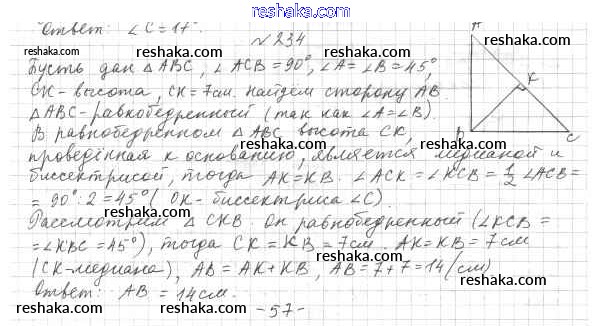 reshak.com
Ответ: ∠C = 17°.
№ 234
Пусть дан △ABC, ∠ACB = 90°, ∠A = ∠B = 45°,
CK - высота, CK = 7см. найдем сторону AB.
△ABC - равнобедренный (так как ∠A = ∠B).
В равнобедренном △ABC высота CK,
проведённая к основанию, является медианой и
биссектрисой, тогда AK = KB. ∠ACK = ∠KCB = 1/2 ∠ACB =
= 90° : 2 = 45° (CK - биссектриса ∠C).
Рассмотрим △CKB. Он равнобедренный (∠KCB =
= ∠KBC = 45°), тогда CK = KB = 7см. AK = KB = 7см
(CK - медиана), AB = AK + KB, AB = 7 + 7 = 14 (см)
Ответ: AB = 14см.
- 57 -
K
C
reshaka.com
reshaka.com
reshaka.com
reshaka.com
reshaka.com
reshaka.com
reshaka.com
reshaka.com
reshaka.com
reshaka.com
reshaka.com
reshaka.com
reshaka.com